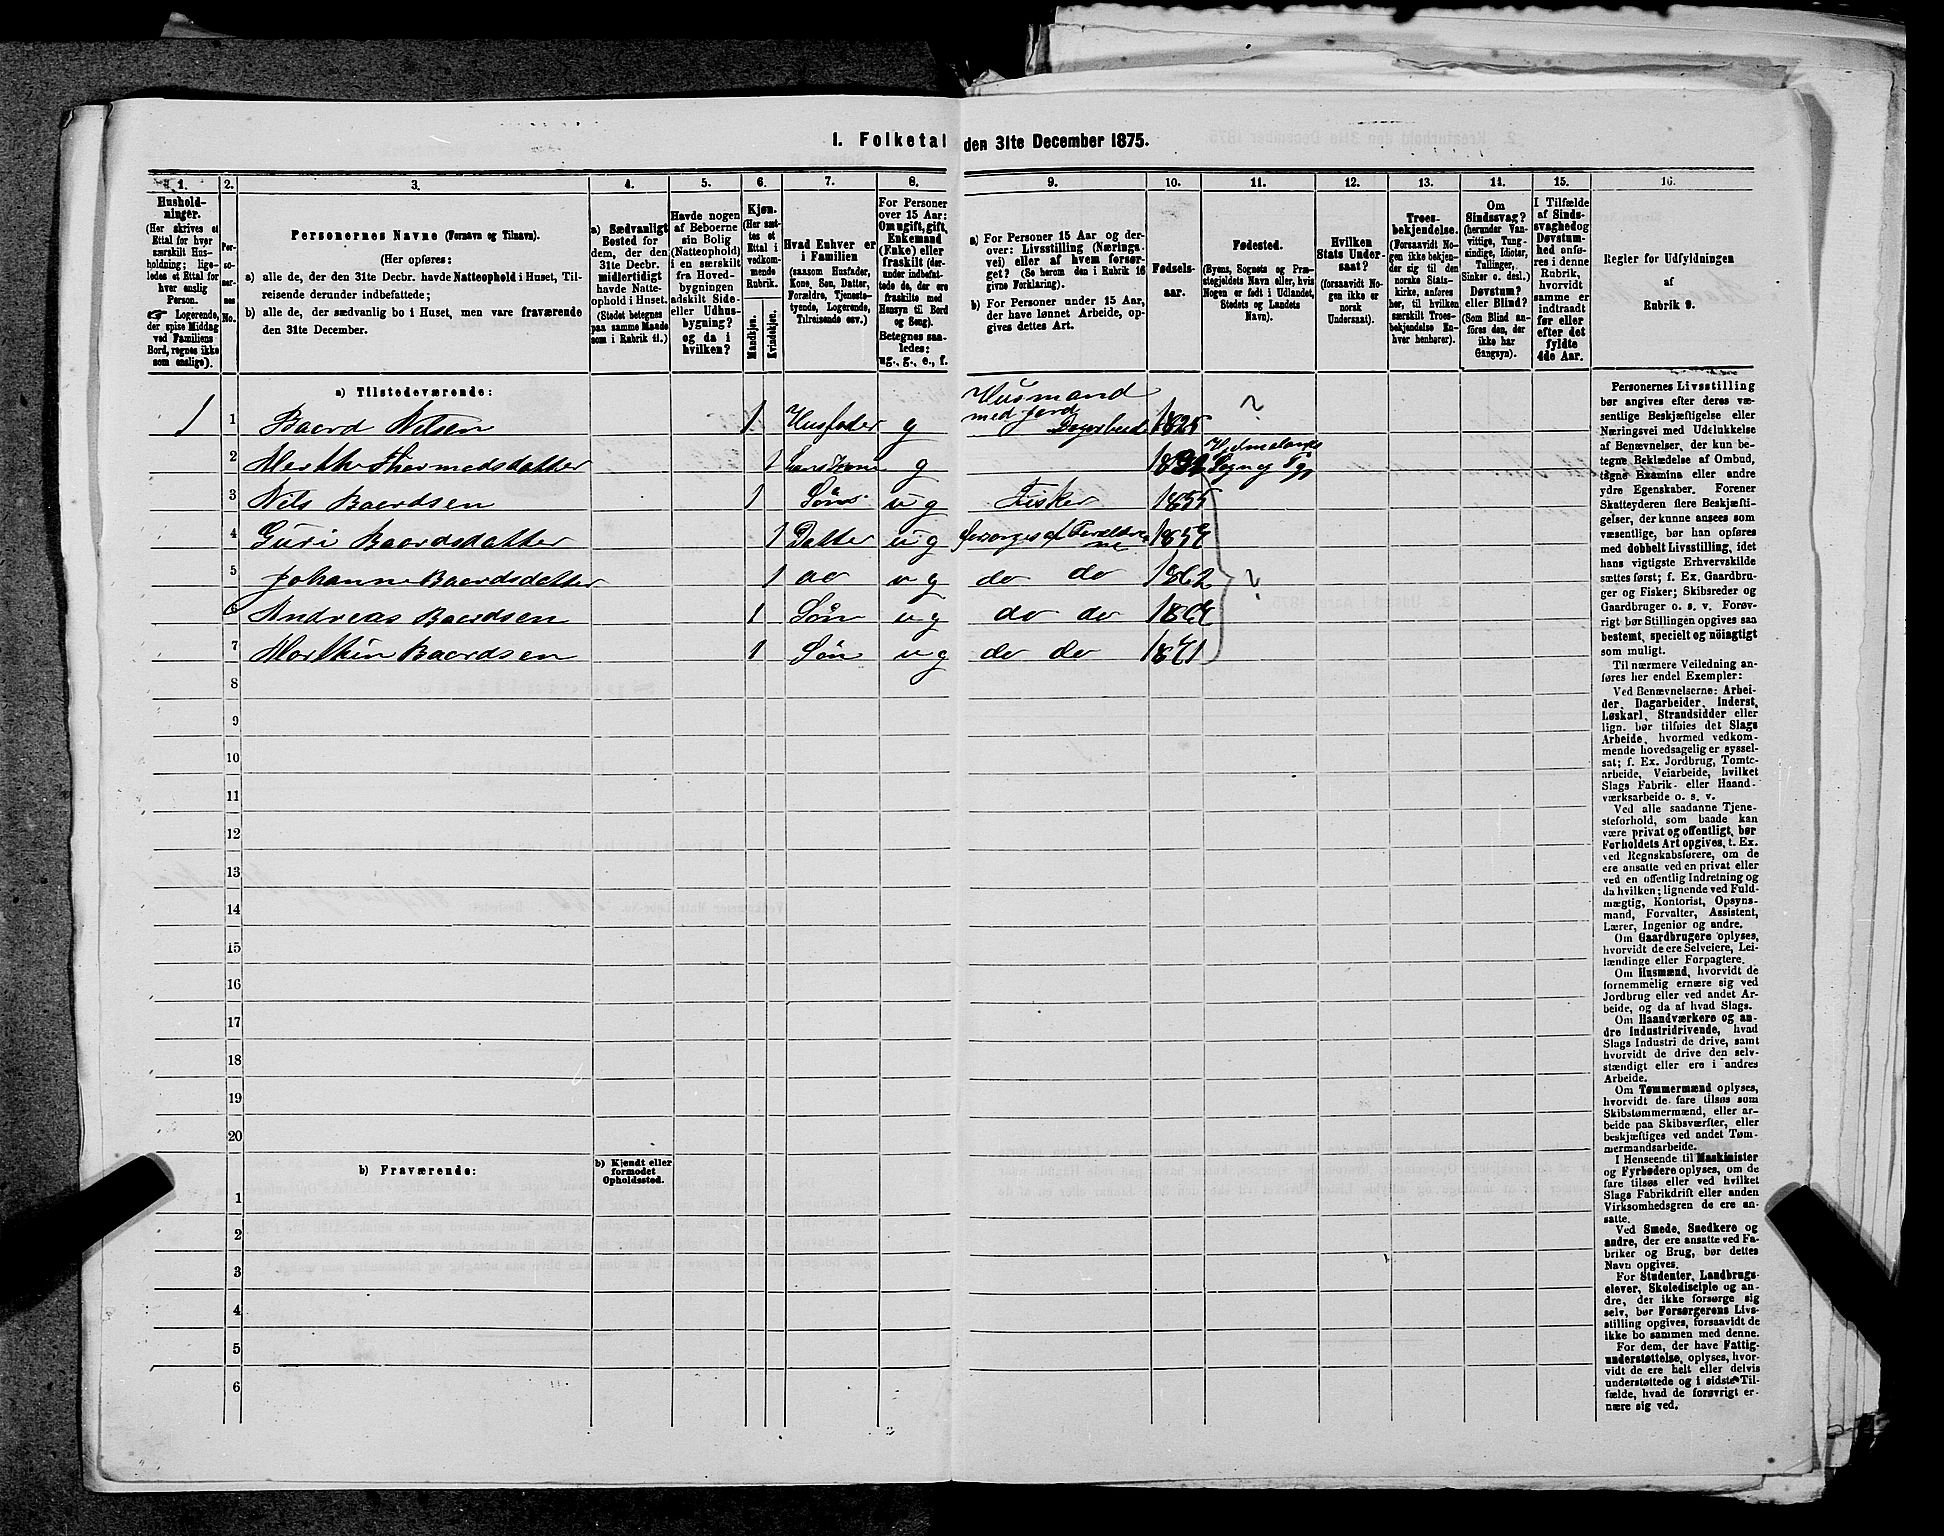 1. Folketal den 31te December 1875.
1.
2.
3.
4.
5.
6.
7.
8.
9.
10.
11.
12.
13.
14.
15.
16.
Hushold-
ninger.
(Her skrives et
Ettal for hver
særskilt Hus-
holdning; lige-
ledes et Ettal for
hver enslig
Person.
☞ Logerende,
der spise Middag
ved Familiens
Bord, regnes ikke
som enslige).
Per-
so-
ner-
nes
No.
Personernes Navne (Fornavn og Tilnavn).
(Her opføres:
a) alle de, der den 31te Decbr. havde Natteophold i Huset, Til-
reisende derunder indbefattede;
b) alle de, der sædvanlig bo i Huset, men vare fraværende
den 31te December.
a) Sædvanligt
Bosted for
dem, der den
31te Decbr.
midlertidigt
havde Natte-
ophold i Huset.
(Stedet betegnes
paa samme Maade
som i Rubrik 11.)
Havde nogen
af Beboerne
sin Bolig
(Natteophold)
i en særskilt
fra Hoved-
bygningen
adskilt Side-
eller Udhus-
bygning?
og da i
hvilken?
Kjøn.
(Her sæt-
tes et
Ettal i
vedkom-
mende
Rubrik.
Mandkjøn.
Kvindekjøn.
Hvad Enhver er
i Familien
(saasom Husfader,
Kone, Søn, Datter,
Forældre, Tjeneste-
tyende, Logerende,
Tilreisende osv.)
For Personer
over 15 Aar:
Om ugift, gift,
Enkemand
(Enke) eller
fraskilt (der-
under indbefat-
tede de, der ere
fraskilte med
Hensyn til Bord
og Seng).
Betegnes saa-
ledes:
ug., g., e., f.
a) For Personer 15 Aar og der-
over: Livsstilling (Nærings-
vei) eller af hvem forsør-
get? (Se herom den i Rubrik 16
givne Forklaring).
b) For Personer under 15 Aar,
der have lønnet Arbeide, op-
gives dettes Art.
Fødsels-
aar.
Fødested.
(Byens, Sognets og Præ-
stegjeldets Navn eller, hvis
Nogen er født i Udlandet,
Stedets og Landets
Navn).
Hvilken
Stats Under-
saat?
(forsaavidt No-
gen ikke er
norsk
Undersaat).
Troes-
bekjendelse.
(Forsaavidt No-
gen ikke bekjen-
der sig til den
norske Stats-
kirke, anføres
her, til hvilken
særskilt Troes-
bekjendelse En-
hver henhører).
Om
Sindssvag?
(herunder Van-
vittige, Tung-
sindige, Idioter,
Tullinger,
Sinker o. desl.)
Døvstum?
eller Blind?
(Som Blind an-
føres den, der
ikke har
Gangsyn).
I Tilfælde
af Sinds-
svaghed og
Døvstum-
hed anfø-
res i denne
Rubrik,
hvorvidt
samme er
indtraadt
før eller
efter det
fyldte
4de Aar.
Regler for Udfyldningen
af
Rubrik 9.
a) Tilstedeværende:
1 1 Baerd Nilsen 1 Husfader g Husmand
med jord
Dagarbeide 1825 ?
2 Merthe Thormodsdatter 1 hans Kone g Hjelmelands
Sogn og Pgj
3 Nils Baerdsen 1 Søn ug Fisker 1855
4 Guri Baerdsdatter 1 Datter ug forsørges af Forældre
ne
5 Johanne Baerdsdatter 1 do ug do do 1862 ?
6 Andreas Baerdsen 1 Søn ug do do
7 Morthin Baerdsen 1 Søn ug do do 1871
8
9
10
11
12
13
14
15
16
17
18
19
20
b) Fraværende:
b) Kjendt eller
formodet
Opholdssted.
1
2
3
4
5
6
Personernes Livsstilling
bør angives efter deres væ-
sentlige Beskjæftigelse eller
Næringsvei med Udelukkelse
af Benævnelser, der kun be-
tegne Beklædelse af Ombud,
tagne Examina eller andre
ydre Egenskaber. Forener
Skatteyderen flere Beskjæfti-
gelser, der kunne ansees som
væsentlige, bør han opføres
med dobbelt Livsstilling, idet
hans vigtigste Erhvervskilde
sættes først; f. Ex. Gaardbru-
ger og Fisker; Skibsreder og
Gaardbruger o. s. v. Forøv-
rigt bør Stillingen opgives saa
bestemt, specielt og nöiagtigt
som muligt.
Til nærmere Veiledning an-
føres her endel Exempler:
Ved Benævnelserne: Arbei-
der, Dagarbeider, Inderst,
Løskarl, Strandsidder eller
lign. bør tilføies det Slags
Arbeide, hvormed vedkom-
mende hovedsagelig er syssel-
sat; f. Ex. Jordbrug, Tomte-
arbeide, Veiarbeide, hvilket
Slags Fabrik- eller Haand-
værksarbeide o. s. v.
Ved alle saadanne Tjene-
steforhold, som baade kan
være privat og offentligt, bør
Forholdets Art opgives, t. Ex.
ved Regnskabsførere, om de
ere ansatte ved en privat eller
ved en offentlig Indretning og
da hvilken; lignende ved Fuld-
mægtig, Kontorist, Opsyns-
mand, Forvalter, Assistent,
Lærer, Ingeniør og andre.
Om Gaardbrugere oplyses,
hvorvidt de ere Selveiere, Lei-
lændinge eller Forpagtere.
Om Husmænd, hvorvidt de
fornemmelig ernære sig ved
Jordbrug eller ved andet Ar-
beide, og da af hvad Slags.
Om Haandværkere og an-
dre Industridrivende, hvad
Slags Industri de drive, samt
hvorvidt de drive den selv-
stændigt eller ere i andres
Arbeide.
Om Tømmermænd oplyses,
hvorvidt de fare tilsøs som
Skibstømmermænd, eller ar-
beide paa Skibsværfter, eller
beskjæftiges ved andet Tøm-
mermandsarbeide.
I Henseende til Maskinister
og Fyrbødere oplyses, om de
fare tilsøs eller ved hvilket
Slags Fabrikdrift eller anden
Virksomhedsgren de ere an-
satte.
Ved Smede, Snedkere og
andre, der ere ansatte ved Fa-
briker og Brug, bør dettes
Navn opgives.
For Studenter, Landbrugs-
elever, Skoledisciple og an-
dre, der ikke forsørge sig
selv, bør Forsørgerens Livs-
stilling opgives, forsaavidt de
ikke bo sammen med denne.
For dem, der have Fattig-
understøttelse, oplyses, hvor-
vidt de ere helt eller delvis
understøttede og i sidste Til-
fælde, hvad de forøvrigt er-
nære sig ved.